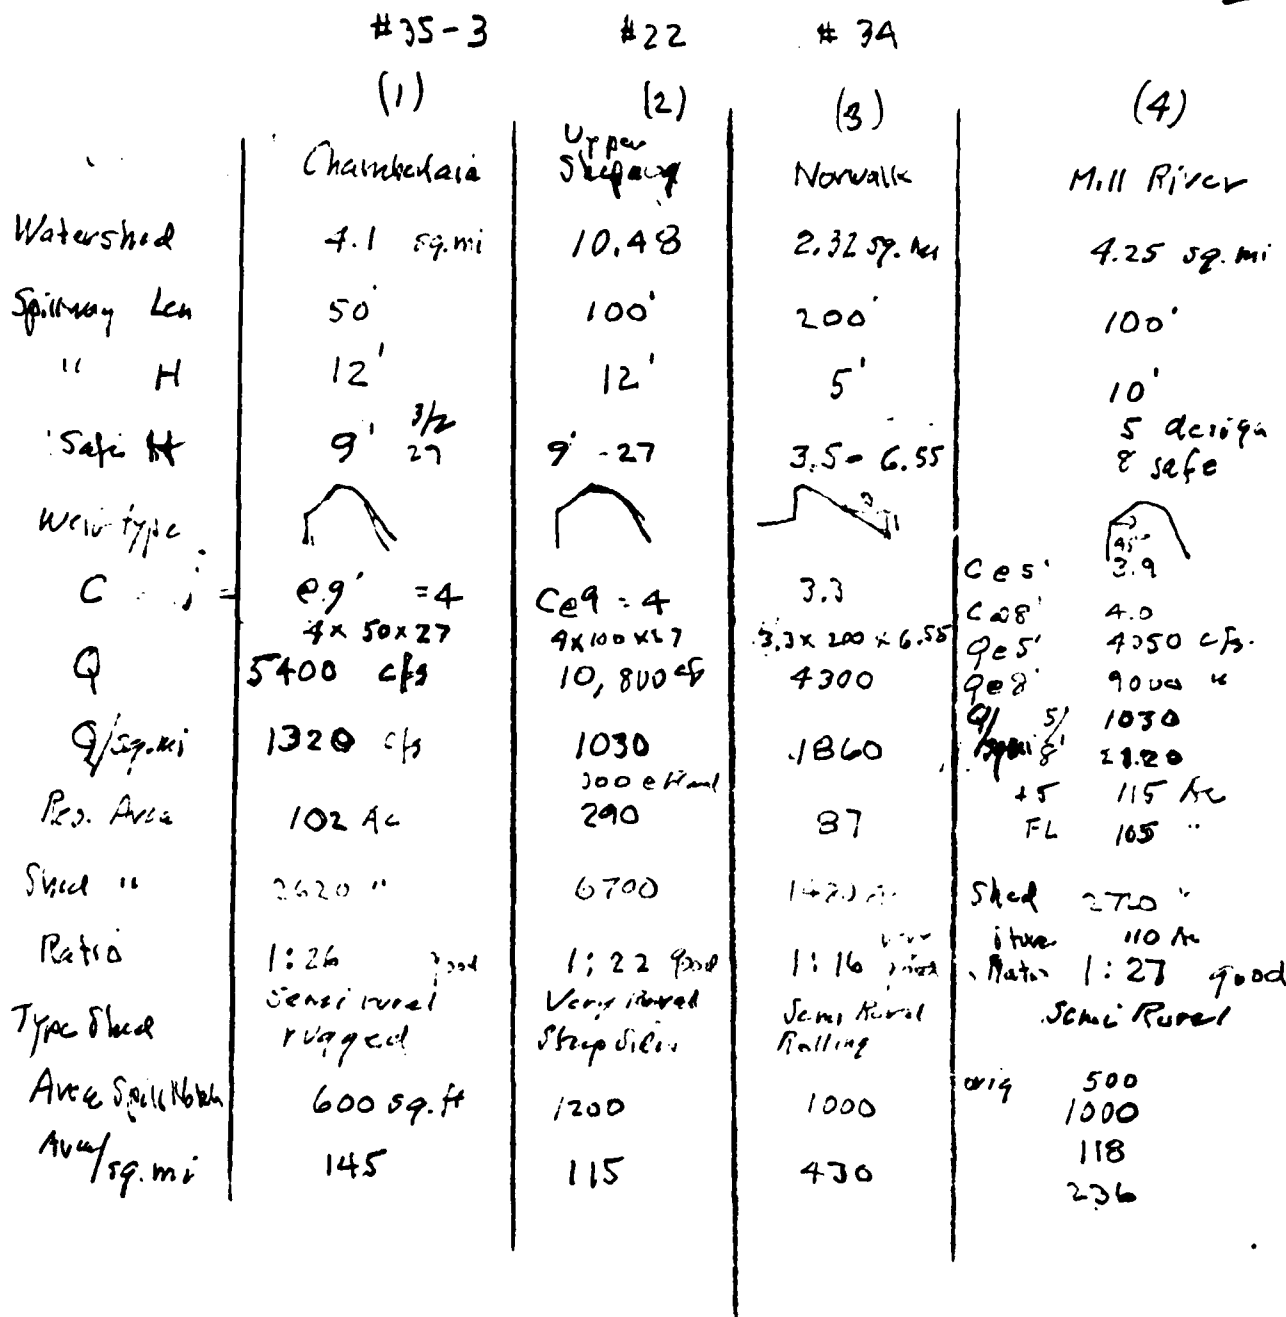 #35-3 #22 #34
(1) (2) (3) (4)
Chamberlain Upper Shepaug Norwalk Mill River
Watershed 4.1 sq.mi 10.48 2.32 sq. mi 4.25 sq. mi
Spillway Len 50' 100' 200' 100'
" H 12' 12' 5' 10'
5 design
Safe Ht 9' 3/2 27 9' - 27 3.5 - 6.55 8 safe
Weir type 45°
C @ 9' = 4 C@9 = 4 3.3 C@5' 3.9
C@8' 4.0
4 x 50 x 27 4x100x27 3.3 x 200 x 6.55 Q@5' 4350 cfs.
Q 5400 cfs 10,800 cfs 4300 Q@8' 9000 "
Q/sq.mi 1320 cfs 1030 1860 Q/sqmi 5' 1030
8' 2120
300
+5 115 Ac
Res. Area 102 Ac 290 87 FL 105 "
Shed " 2620 " 6700 1480 Ac Shed 2720 "
110 Ac
Ratio 1:26 good 1:22 good 1:16 very good Ratio 1:27 good
Type Shed Semi rural rugged Very Rural Steep Sides Semi Rural Rolling Semi Rural
Area Spill Notch 600 sq.ft 1200 1000 orig 500
1000
Area/sq.mi 145 115 430 118
236